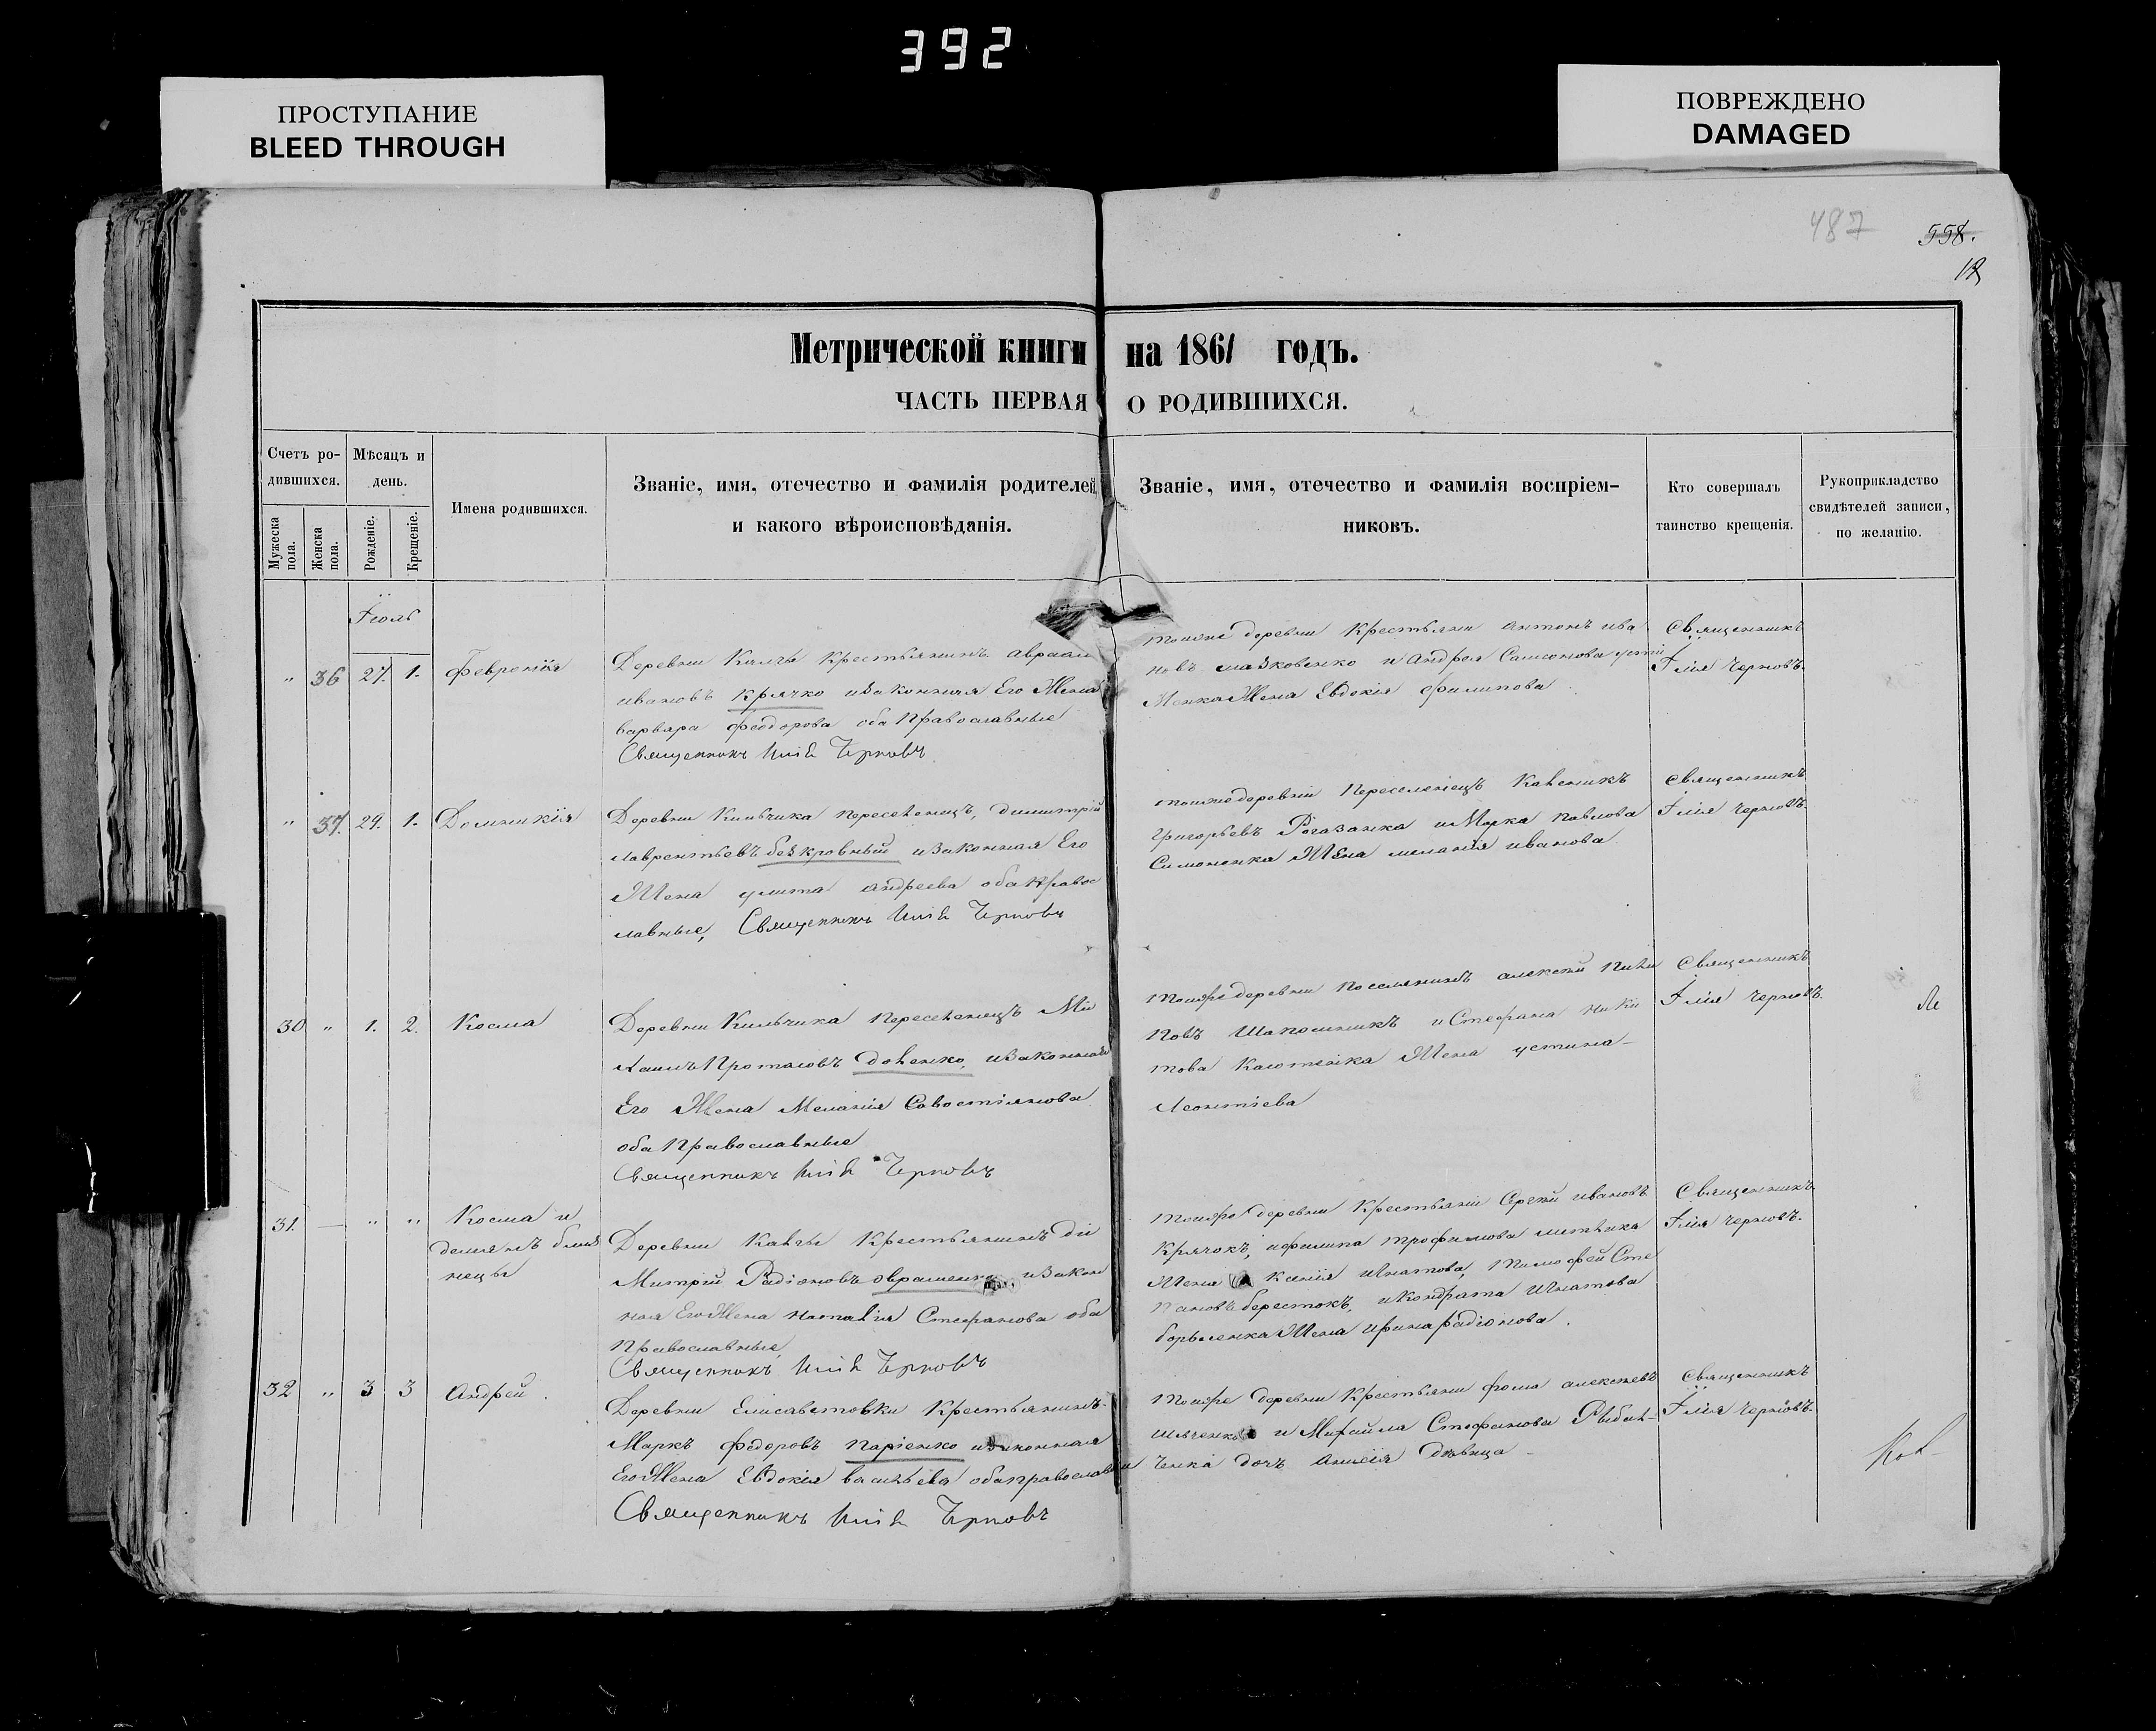 392
ПРОСТУПАНИЕ
BLEED THROUGH
ПОВРЕЖДЕНО
DAMAGED
487
558.
12
Метрической книги на 1861 годъ.
ЧАСТЬ ПЕРВАЯ О РОДИВШИХСЯ.
Счетъ родившихся.
Мѣсяцъ и день.
Мужеска пола.
Женска пола.
Рожденіе.
Крещеніе.
Имена родившихся.
Званіе, имя, отечество и фамилія родителей,
и какого вѣроисповѣданія.
Званіе, имя, отечество и фамилія воспріем-
никовъ.
Кто совершалъ
таинство крещенія.
Рукоприкладство
свидѣтелей записи,
по желанію.
Іюль
" 36 27. 1. Февронія
Деревни Крестьянинъ Авраам
ивановъ Крячко изаконная Его Жена
варвара феодорова оба Православные
Священникъ Илія Черновъ
тоижe деревни Крестьянин антонъ ива
новъ мазковенко и андрея Самсонова
Жена Евдокія филипова
Священникъ
Илія Черновъ.
" 37. 29. 1. Домникія
Деревни Кильчика переселенецъ, димитрій
лаврентьевъ безкровный изаконная Его
Жена улита андреева оба Правос
лавные, Священникъ Илія Черновъ
тоиже деревни Переселенецъ
григорьевъ Рогазанка и Марка павлова
Симоненка Жена меланія иванова
Священникъ
Илія Черновъ.
30 " 1. 2. Косма
Деревни Кильчика переселенецъ Ми
хаилъ изаконная
Его Жена Меланія Савостіянова
оба Православные
Священникъ Илія Черновъ
тоиже деревни поселянинъ алексей
повъ Шапошникъ и Стефана ники
това Жена устина
Леонтіева
Священникъ
Илія Черновъ.
31. — " " Косма и
деміянъ близ
нецы
Деревни Крестьянинъ ди
митрій Радіоновъ Авраменко изакон
ная Его Жена наталія Стефанова оба
Православные
Священникъ Илія Черновъ
тоиже деревни Крестьянин Сергей ивановъ
Крячокъ, ифилипа трофимова
Жена ксенія игнатова, тимофей Сте
пановъ берестокъ, икондрата игнатова
Жена ирина радіонова.
Священникъ
Илія Черновъ.
32 " 3 3 Андрей.
Деревни Елисаветовки Крестьянинъ
Маркъ федоровъ паріенко изаконная
Его Жена Евдокія васильева оба православные
Священникъ Илія Черновъ
тоиже деревни Крестьянин фома алексеевъ
и Михайла Стефанова Рыбал-
ченка дочь анисія дѣвица
Священникъ
Илія Черновъ.